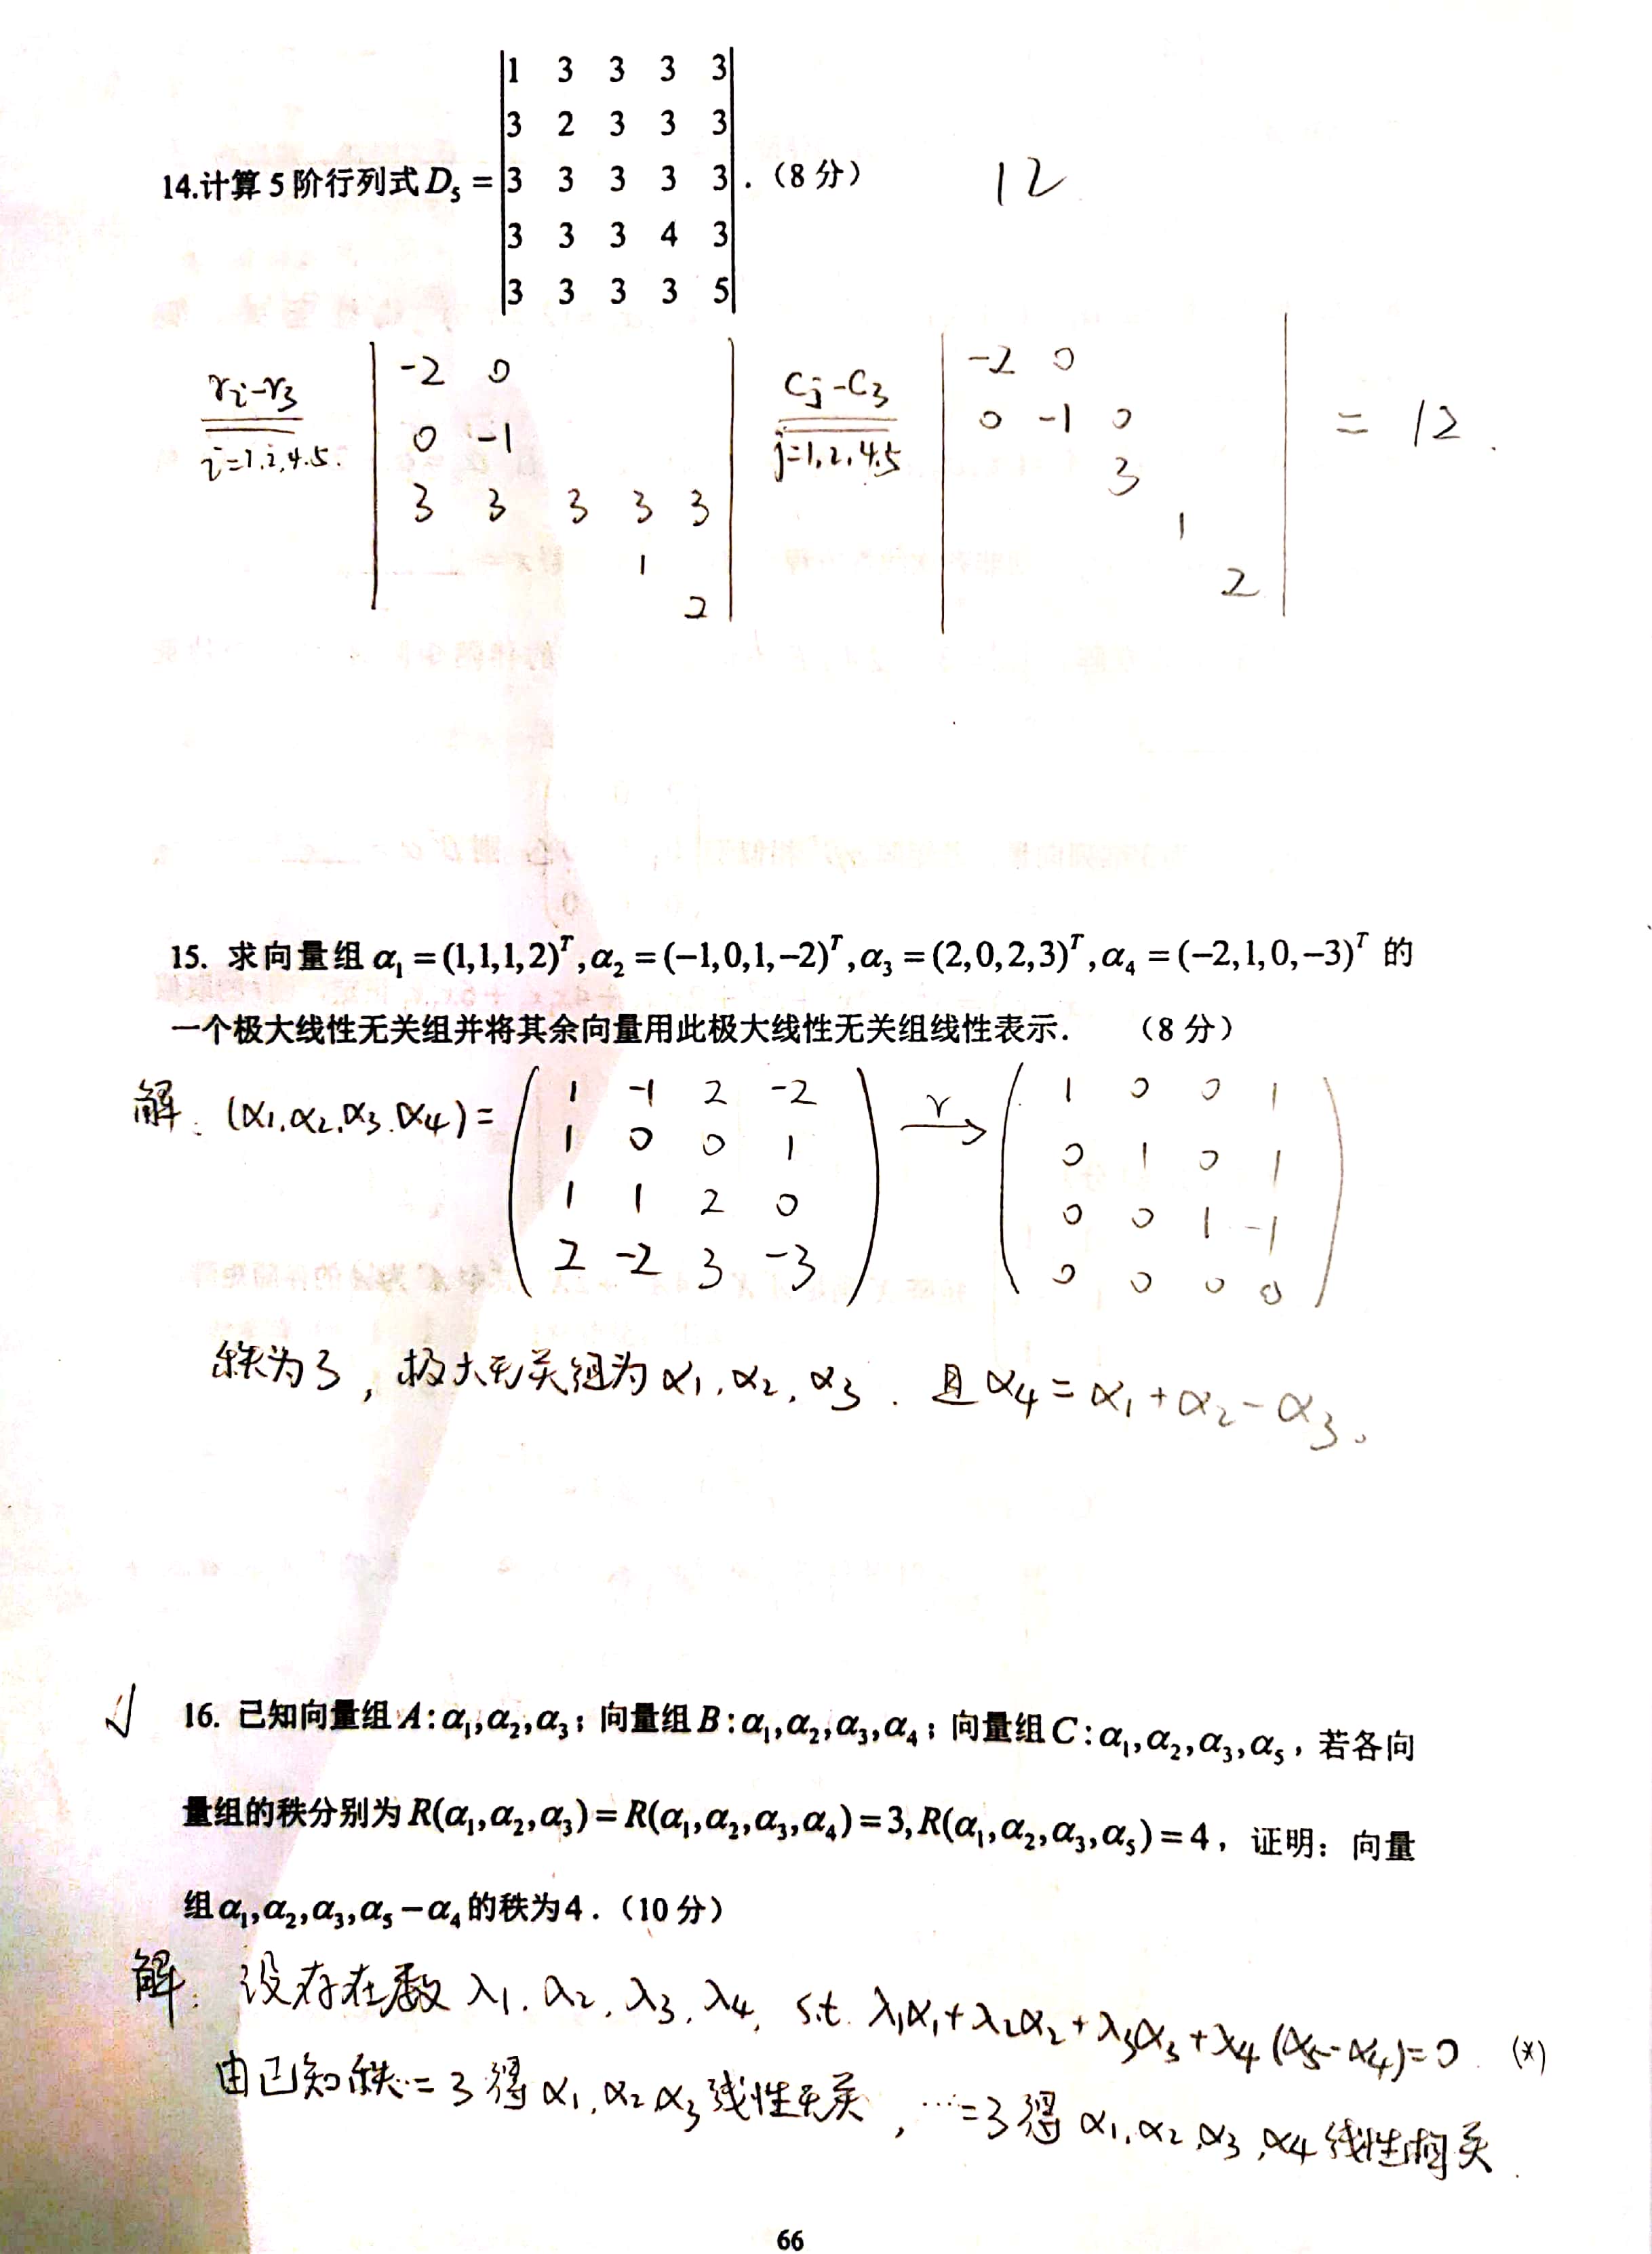 14.计算 5 阶行列式 D₅ = |1 3 3 3 3|
|3 2 3 3 3|
|3 3 3 3 3| .（8 分） 12
|3 3 3 4 3|
|3 3 3 3 5|
rᵢ-r₃ | -2 0 | Cⱼ-C₃ | -2 0 |
i=1.2,4.5. | 0 -1 | j=1,2,4.5 | 0 -1 0 | = 12.
| 3 3 3 3 3 | | 3 |
| 1 | | 1 |
| 2 | | 2 |
15. 求向量组 α₁ = (1,1,1,2)ᵀ, α₂ = (-1,0,1,-2)ᵀ, α₃ = (2,0,2,3)ᵀ, α₄ = (-2,1,0,-3)ᵀ 的
一个极大线性无关组并将其余向量用此极大线性无关组线性表示. （8 分）
解: (α₁.α₂.α₃.α₄) = ( 1 -1 2 -2 ) r→ ( 1 0 0 1 )
( 1 0 0 1 ) ( 0 1 0 1 )
( 1 1 2 0 ) ( 0 0 1 -1 )
( 2 -2 3 -3 ) ( 0 0 0 0 )
秩为3, 极大无关组为 α₁, α₂, α₃. 且 α₄ = α₁ + α₂ - α₃。
16. 已知向量组 A: α₁, α₂, α₃; 向量组 B: α₁, α₂, α₃, α₄; 向量组 C: α₁, α₂, α₃, α₅, 若各向
量组的秩分别为 R(α₁, α₂, α₃) = R(α₁, α₂, α₃, α₄) = 3, R(α₁, α₂, α₃, α₅) = 4, 证明: 向量
组 α₁, α₂, α₃, α₅ - α₄ 的秩为 4.（10 分）
解: 设存在数 λ₁. λ₂. λ₃. λ₄, s.t. λ₁α₁+λ₂α₂+λ₃α₃+λ₄(α₅-α₄)=0. (*)
由已知秩…=3 得 α₁, α₂, α₃ 线性无关, …=3 得 α₁, α₂, α₃, α₄ 线性相关.
66